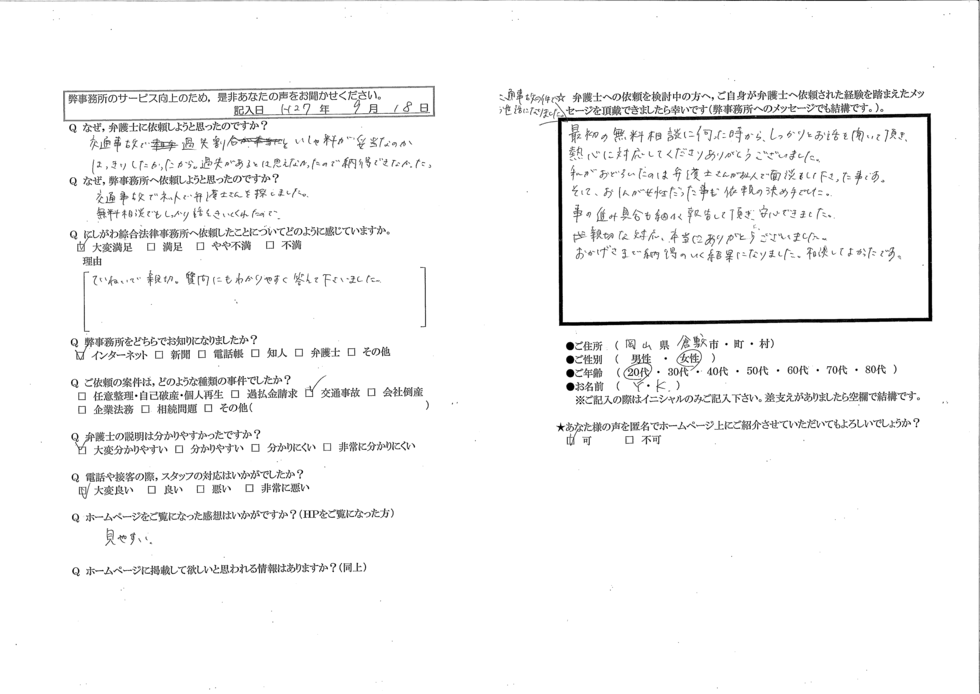 弊事務所のサービス向上のため，是非あなたの声をお聞かせください。
記入日 H27 年 9 月 18 日
Q なぜ，弁護士に依頼しようと思ったのですか？
交通事故で 過失割合 といしゃ料が妥当なのか
はっきりしたかったから。過失があるとは思えなかったので納得できなかった。
Q なぜ，弊事務所へ依頼しようと思ったのですか？
交通事故でネットで弁護士さんを探しました。
無料相談でもしっかり話をきいてくれたので
Q にしがわ総合法律事務所へ依頼したことについてどのように感じていますか。
☑ 大変満足 □ 満足 □ やや不満 □ 不満
理由
ていねいで親切。質問にもわかりやすく答えて下さいました。
Q 弊事務所をどちらでお知りになりましたか？
☑ インターネット □ 新聞 □ 電話帳 □ 知人 □ 弁護士 □ その他
Q ご依頼の案件は，どのような種類の事件でしたか？
□ 任意整理・自己破産・個人再生 □ 過払金請求 ☑ 交通事故 □ 会社倒産
□ 企業法務 □ 相続問題 □ その他( )
Q 弁護士の説明は分かりやすかったですか？
☑ 大変分かりやすい □ 分かりやすい □ 分かりにくい □ 非常に分かりにくい
Q 電話や接客の際，スタッフの対応はいかがでしたか？
☑ 大変良い □ 良い □ 悪い □ 非常に悪い
Q ホームページをご覧になった感想はいかがですか？(HPをご覧になった方)
見やすい。
Q ホームページに掲載して欲しいと思われる情報はありますか？(同上)
交通事故の件で
☆ 弁護士への依頼を検討中の方へ，ご自身が弁護士へ依頼された経験を踏まえたメッ
セージを頂戴できましたら幸いです(弊事務所へのメッセージでも結構です。)。
最初の無料相談に伺った時から、しっかりとお話を聞いて頂き、
熱心に対応してくださりありがとうございました。
私がおどろいたのは弁護士さんが2人で面談をして下さった事です。
そして、お1人が女性だった事も依頼の決め手でした。
事の進み具合も細かく報告して頂き、安心できました。
親切な対応、本当にありがとうございました。
おかげさまで納得のいく結果になりました。相談してよかったです。
●ご住所 ( 岡山 県 倉敷 市・町・村)
●ご性別 ( 男性 ・ 女性 )
●ご年齢 ( 20代 ・ 30代 ・ 40代 ・ 50代 ・ 60代 ・ 70代 ・ 80代 )
●お名前 ( Y ・ K. )
※ご記入の際はイニシャルのみご記入下さい。差支えがありましたら空欄で結構です。
★あなた様の声を匿名でホームページ上にご紹介させていただいてもよろしいでしょうか？
☑ 可 □ 不可